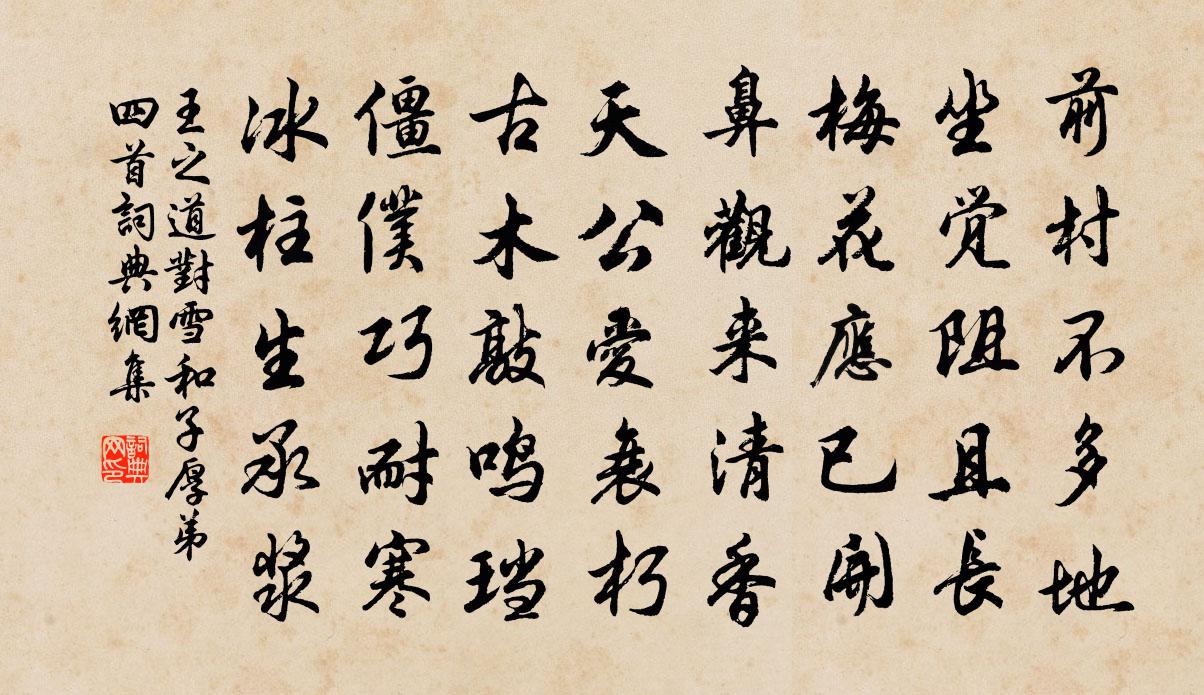 前村不多地
坐觉阻且長
梅花應已開
鼻觀来清香
天公愛衰朽
古木敲鸣珰
僵僕巧耐寒
冰柱生承漿
王之道對雪和子厚弟
四首詞典網集
詞典网印